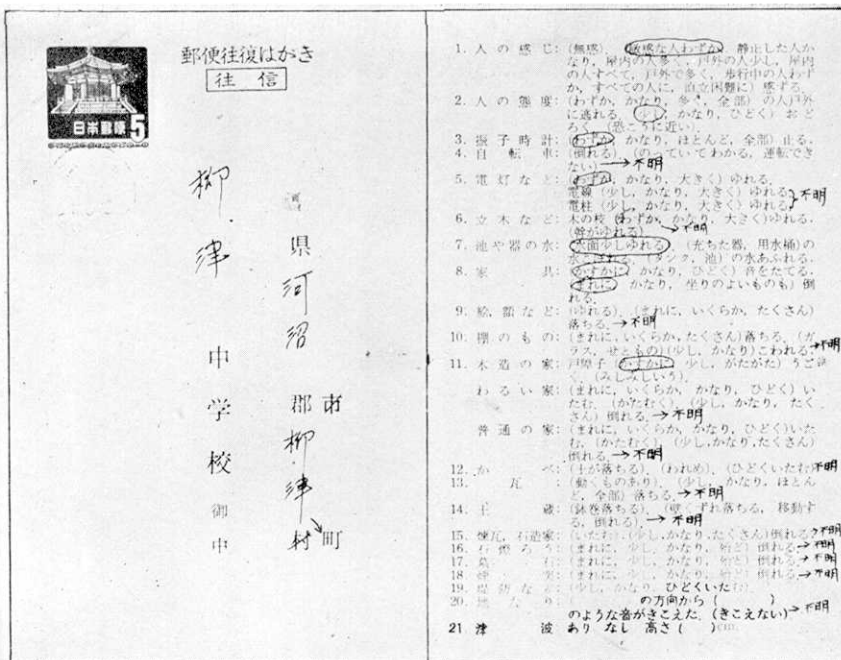 郵便往復はがき
往信
日本郵便5
県河沼
郡市柳津村町
柳津中学校御中
1. 人の感じ: (無感), 敏感な人わずか, 静止した人か
なり, 屋内の人多く, 戸外の人少し, 屋内
の人すべて, 戸外で多く, 歩行中の人わず
か, すべての人に, 直立困難に) 感ずる.
2. 人の態度: (わずか, かなり, 多く, 全部) の人戸外
に逃れる. (少し, かなり, ひどく) おど
ろく. (恐こうに近い).
3. 振子時計: (わずか, かなり, ほとんど, 全部) 止る.
4. 自転車: (倒れる) (のっていてわかる, 運転でき
ない) →不明
5. 電灯など: (わずか, かなり, 大きく) ゆれる.
電線 (少し, かなり, 大きく) ゆれる
電柱 (少し, かなり, 大きく) ゆれる } 不明
6. 立木など: 木の枝 (わずか, かなり, 大きく) ゆれる.
(幹がゆれる) →不明
7. 池や器の水: (水面少しゆれる), (充ちた器, 用水桶) の
水こぼれる. (タンク, 池) の水あふれる.
8. 家具: (かすかに, かなり, ひどく) 音をたてる.
(まれに, かなり, 坐りのよいものも) 倒
れる.
9. 絵, 額など: (ゆれる), (まれに, いくらか, たくさん)
落ちる. →不明
10. 棚のもの: (まれに, いくらか, たくさん) 落ちる, (ガ
ラス, せともの) (少し, かなり) こわれる. →不明
11. 木造の家: 戸障子 (かすかに, 少し, がたがた) うご
(みしみしいう).
わるい家: (まれに, いくらか, かなり, ひどく) い
たむ, (かたむく), (少し, かなり, たく
さん) 倒れる. →不明
普通の家: (まれに, いくらか, かなり, ひどく) いた
む, (かたむく), (少し, かなり, たくさん)
倒れる. →不明
12. かべ: (土が落ちる), (われめ), (ひどくいたむ) 不明
13. 瓦: (動くものあり), (少し, かなり, ほとん
ど, 全部) 落ちる. →不明
14. 土蔵: (鉢巻落ちる), (壁くずれ落ちる, 移動す
る, 倒れる). →不明
15. 煉瓦, 石造家: (いたむ), (少し, かなり, たくさん) 倒れる. →不明
16. 石燈ろう: (まれに, 少し, かなり, 殆ど) 倒れる →不明
17. 墓石: (まれに, 少し, かなり, 殆ど) 倒れる →不明
18. 煙突: (まれに, 少し, かなり, 殆ど) 倒れる →不明
19. 堤防など: (少し, かなり, ひどくいたむ).
20. 地なり: ( の方向から ( )
のような音がきこえた. (きこえない) →不明
21 津波 あり なし 高さ ( )cm